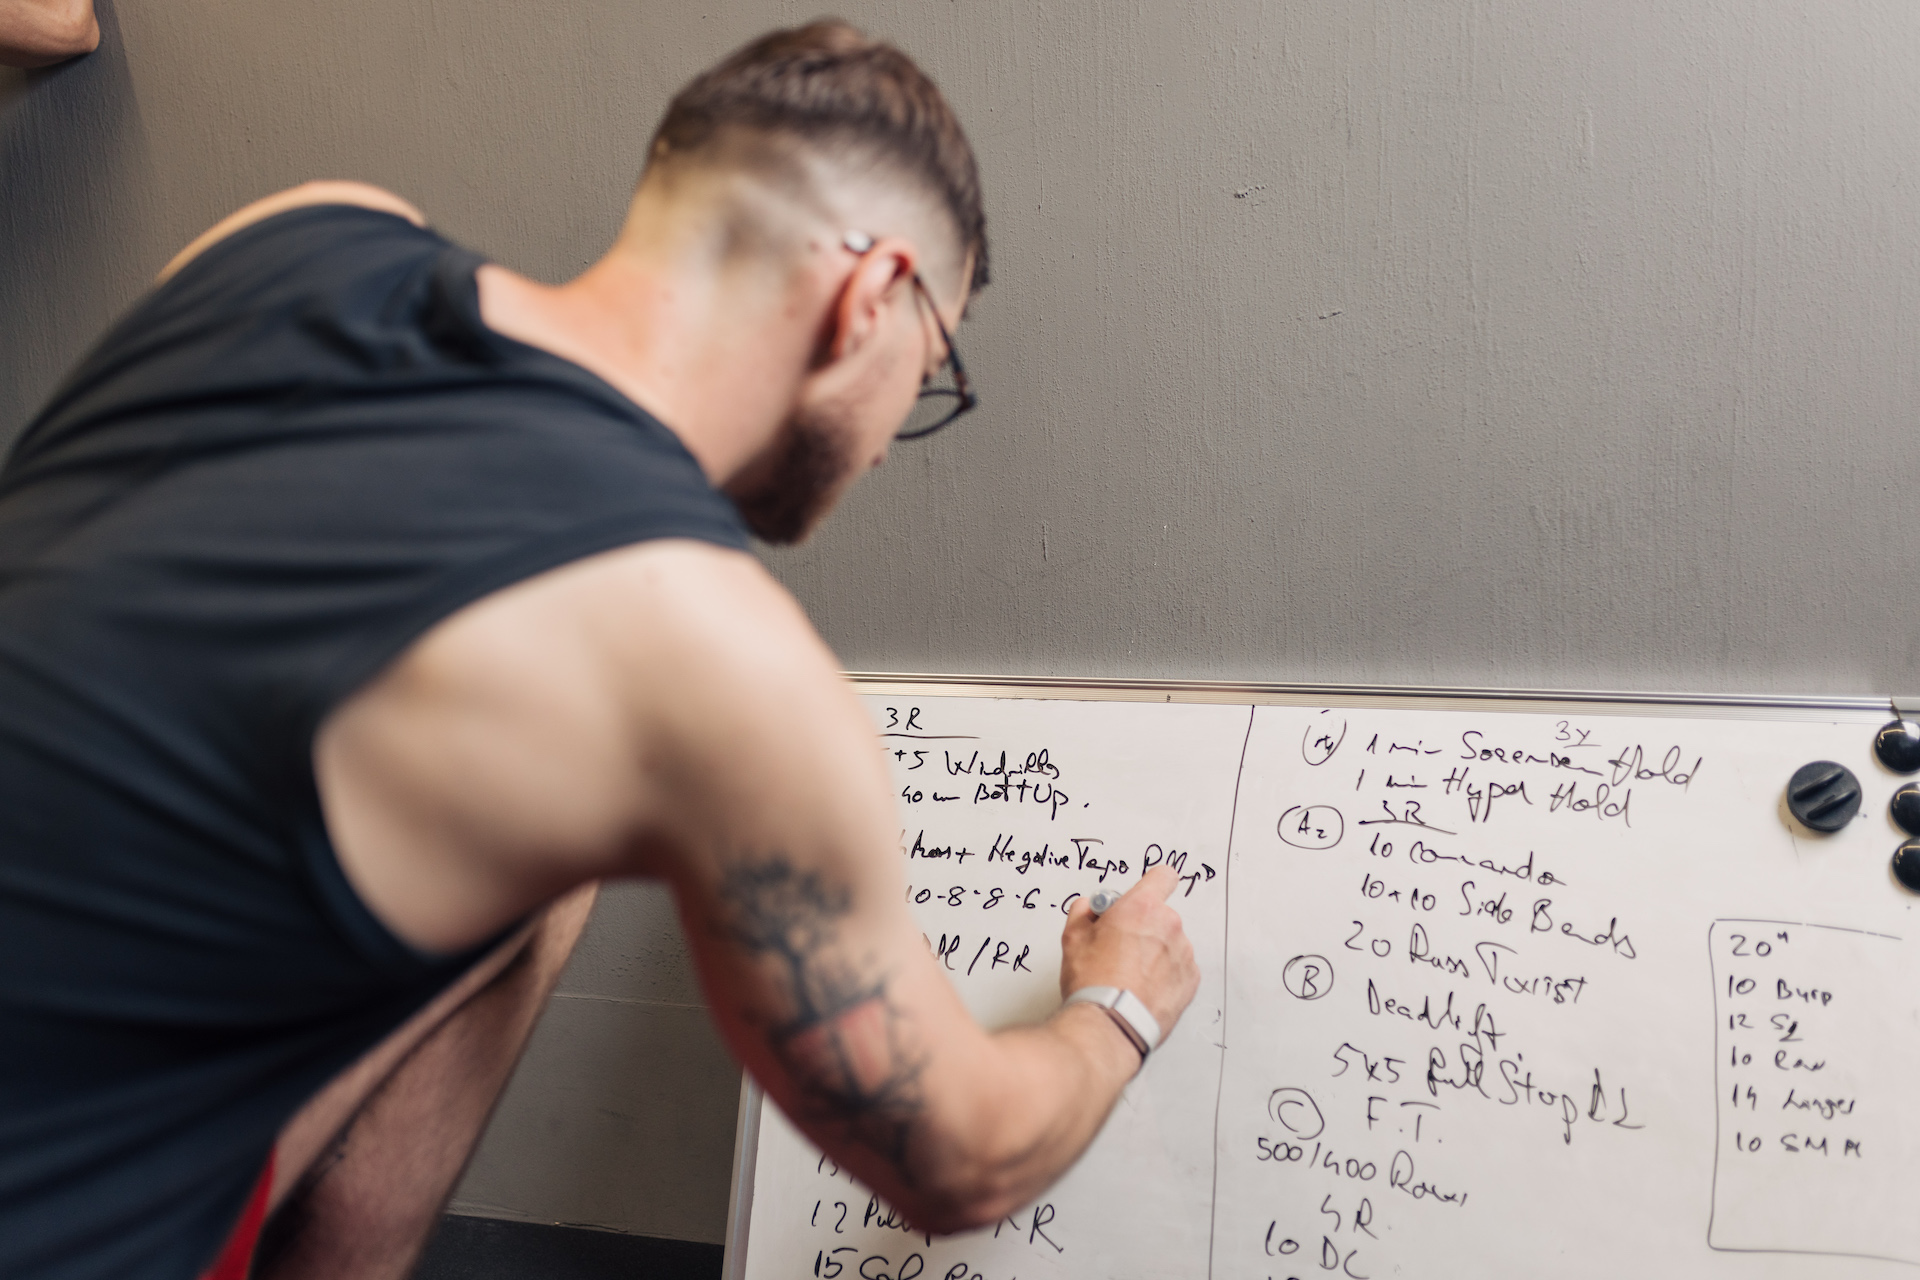 3 R
+5 Windmills
40 m Bott Up.
+ Negative Tempo Pullups
10-8-8-6-
/RR
12 RR
15 Cal
3
1 min Sorensen Hold
1 min Hyper Hold
A2 3R
10 Comando
10+10 Side Bends
20 Russ Twist
B Deadlift
5x5 Full Stop DL
C F.T.
500/400 Row
4 R.
10 DC
20"
10 Burp
12 SQ
10 Row
14 Lunges
10 SM